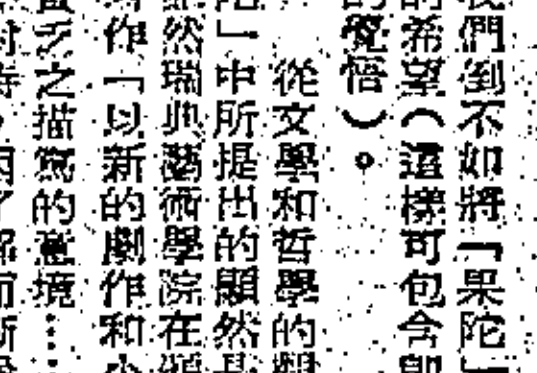 們倒不如將「果陀」
希望（這樣可包含即
覺悟）。
從文學和哲學的觀
」中所提出的顯然
然瑞典藝術學院在頒
作「以新的劇作和小
乏之描寫的意境⋯